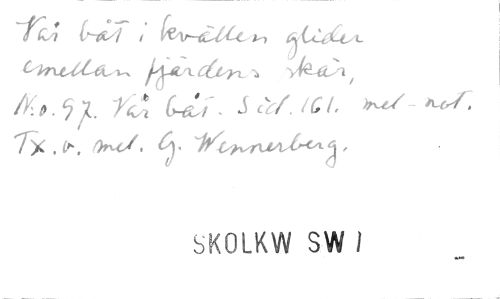 Vår båt i kvällen glider
emellan fjärdens skär,
N:o. 97. Vår båt. Sid. 161. mel-not.
Tx. o. mel. G. Wennerberg.
SKOLKW SW 1